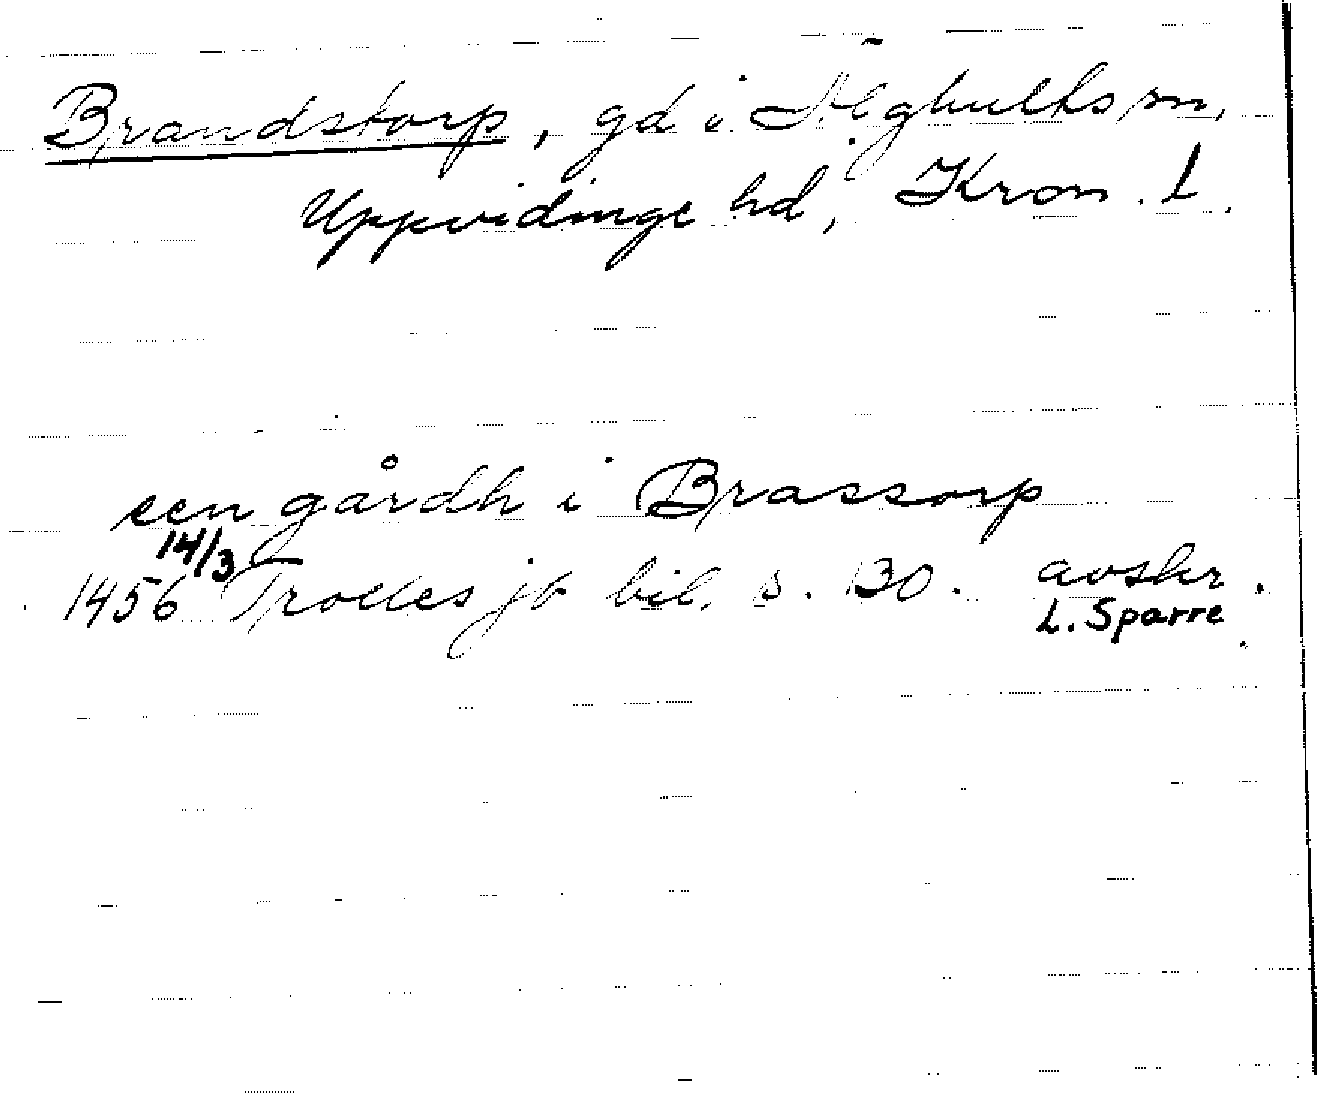 Brandstorp, gd i Älghults sn,
Uppvidinge hd, Kron. l.
een gårdh i Brassorp
14/3
1456 Trolles jb bil. s. 130. avskr.
L. Sparre